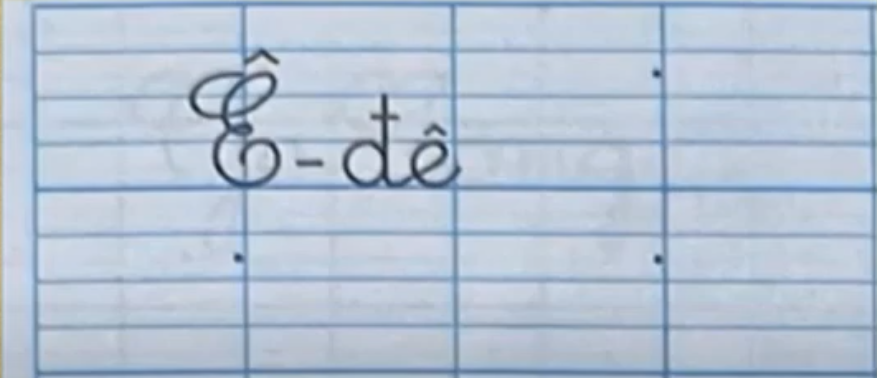 Ê-đê